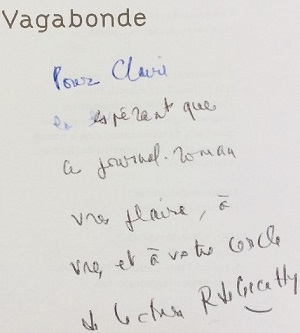 Vagabonde
Pour Claire
en espérant que
ce journal-roman
vous plaira, à
vous, et à votre cercle
de lecture R de Ceccatty